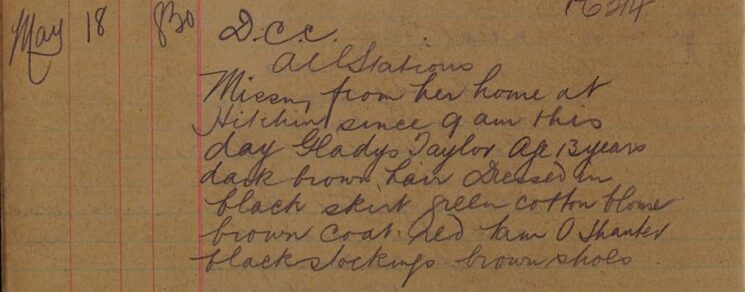 May 18 830 D.C.C.
All Stations
Missing from her home at
Hitchin since 9 am this
day Gladys Taylor Age 13 years
dark brown hair Dressed in
black skirt green cotton blouse
brown coat red Tam O Shanter
black stockings brown shoes